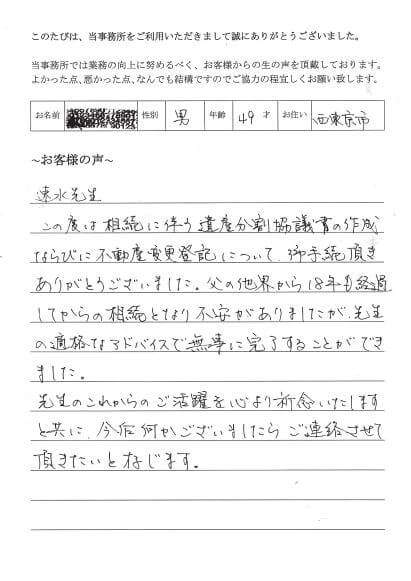 このたびは、当事務所をご利用いただきまして誠にありがとうございました。
当事務所では業務の向上に努めるべく、お客様からの生の声を頂戴しております。
よかった点、悪かった点、なんでも結構ですのでご協力の程宜しくお願い致します。
お名前 性別 男 年齢 49 才 お住い 西東京市
~お客様の声~
速水先生
この度は相続に伴う遺産分割協議書の作成
ならびに不動産変更登記について、御手続頂き
ありがとうございました。父の他界から18年も経過
してからの相続となり不安がありましたが、先生
の適格なアドバイスで無事に完了することができ
ました。
先生のこれからのご活躍を心より祈念いたします
と共に、今后何かございましたらご連絡させて
頂きたいと存じます。